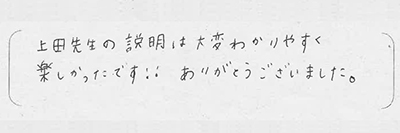 上田先生の説明は大変わかりやすく
楽しかったです!! ありがとうございました。